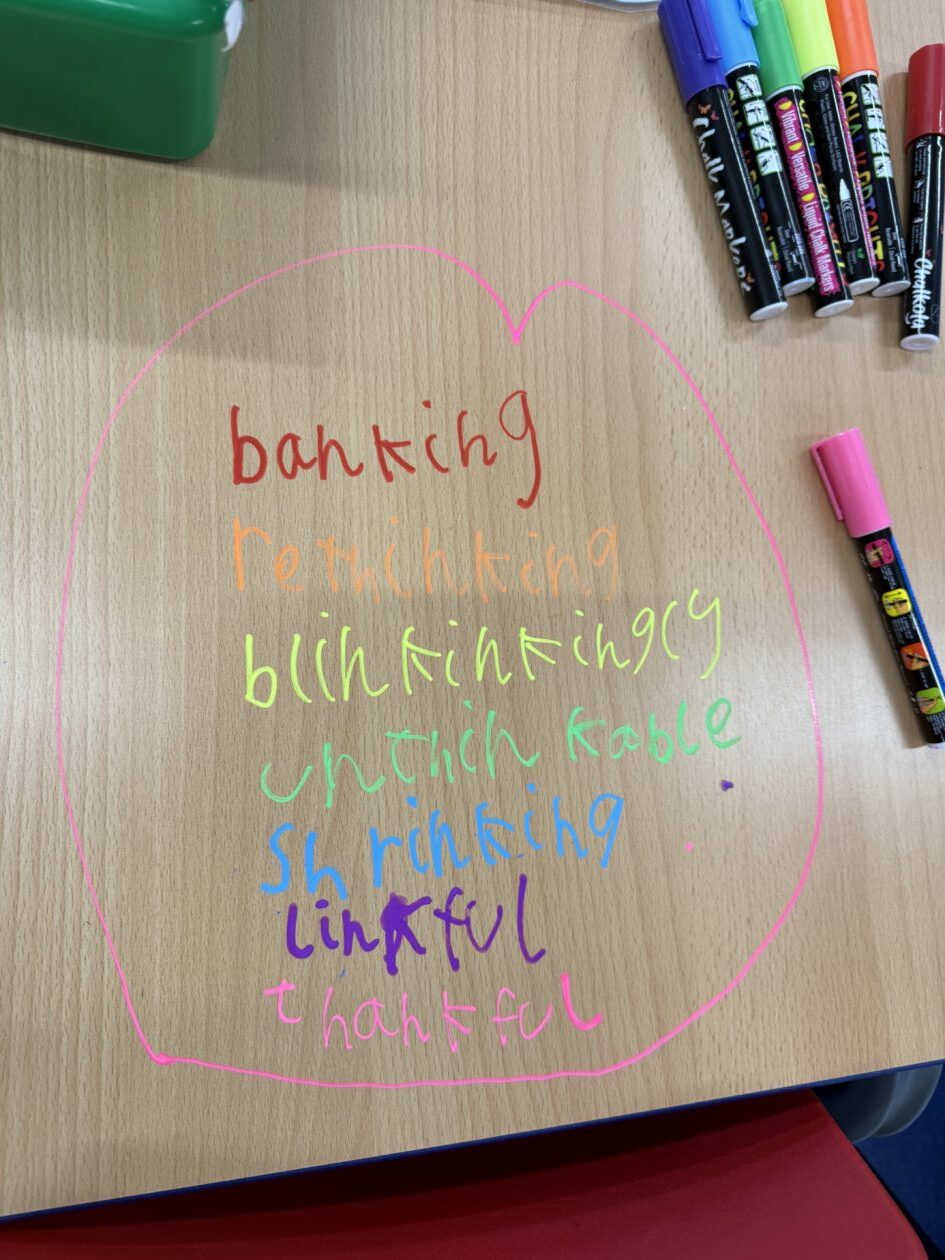 Chalk Markers
Vibrant Versatile Liquid Chalk Markers
Chalkola
banking
rethinking
blinkinkingly
unthinkable
shrinking
linkful
thankful